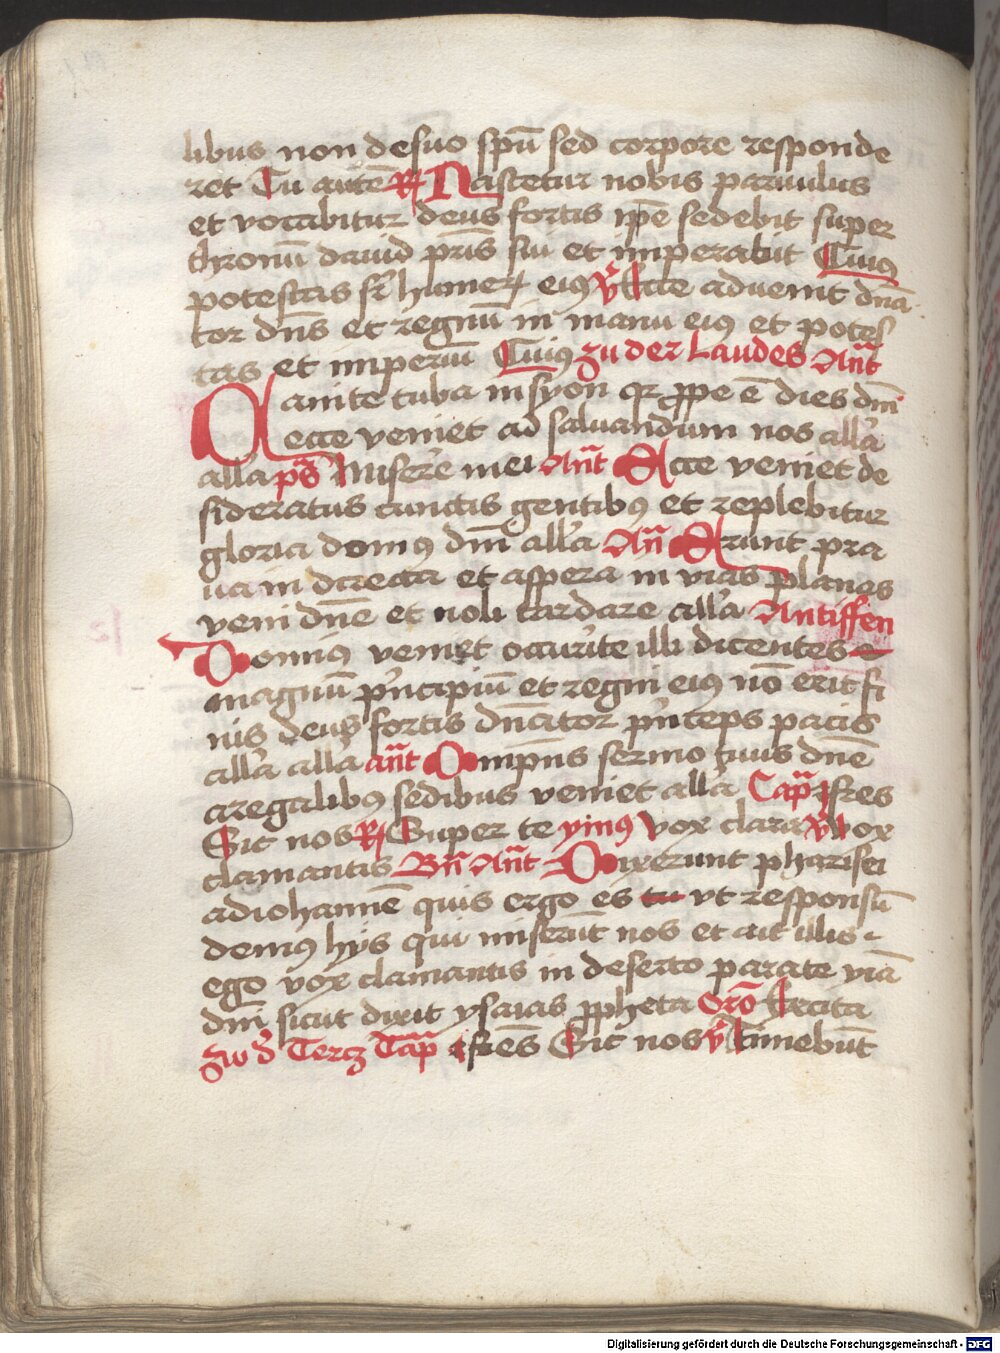 libus non de suo spū sed corpore responde
ret Tu autē R Nascetur nobis paruulus
et vocabitur deus fortis ipē sedebit super
thronū dauid pr̄is sui et imperabit Cuius
potestas sr̄ humeꝝ eiꝯ v̄ Ecce aduenit dn̄a
tor dn̄s et regnū in manu eiꝯ et potes
tas et imperiū Cuiꝯ zu der Laudes An̄t
Canite tuba in syon qr ꝓpe ē dies dn̄i
ecce veniet ad saluandum nos all'a
alla ps̄ Misere mei An̄t Ecce veniet de
sideratus cunctis gentibꝯ et replebitur
gloria domꝯ dn̄i all'a An̄ Erunt pra
ua in directa et aspera in vias planas
veni dn̄e et noli tardare all'a Antiffen
Dominꝯ veniet occur'ite illi dicentes
magnū p'ncipiū et regni eiꝯ nō erit fi
nis deus fortis dn̄ator p'nceps pacis
all'a all'a an̄t Omnpn̄s sermo tuus dn̄e
a regalibꝯ sedibus veniet all'a Cap̄ Fr̄es
Sic nos R Super te ymꝯ vox clara v̄ vox
clamantis Bn̄ An̄t Dixerunt pharisei
ad iohannē quis ergo es tu vt responsū
demꝯ hys qui miserūt nos et ait illis
ego vox clamantis in deserto parate viā
dn̄i sicut dixit ysaias ꝓpheta Orō Excita
zu d' Tercz Cap̄ Fr̄es Sic nos v̄ Timebūt
Digitalisierung gefördert durch die Deutsche Forschungsgemeinschaft - DFG